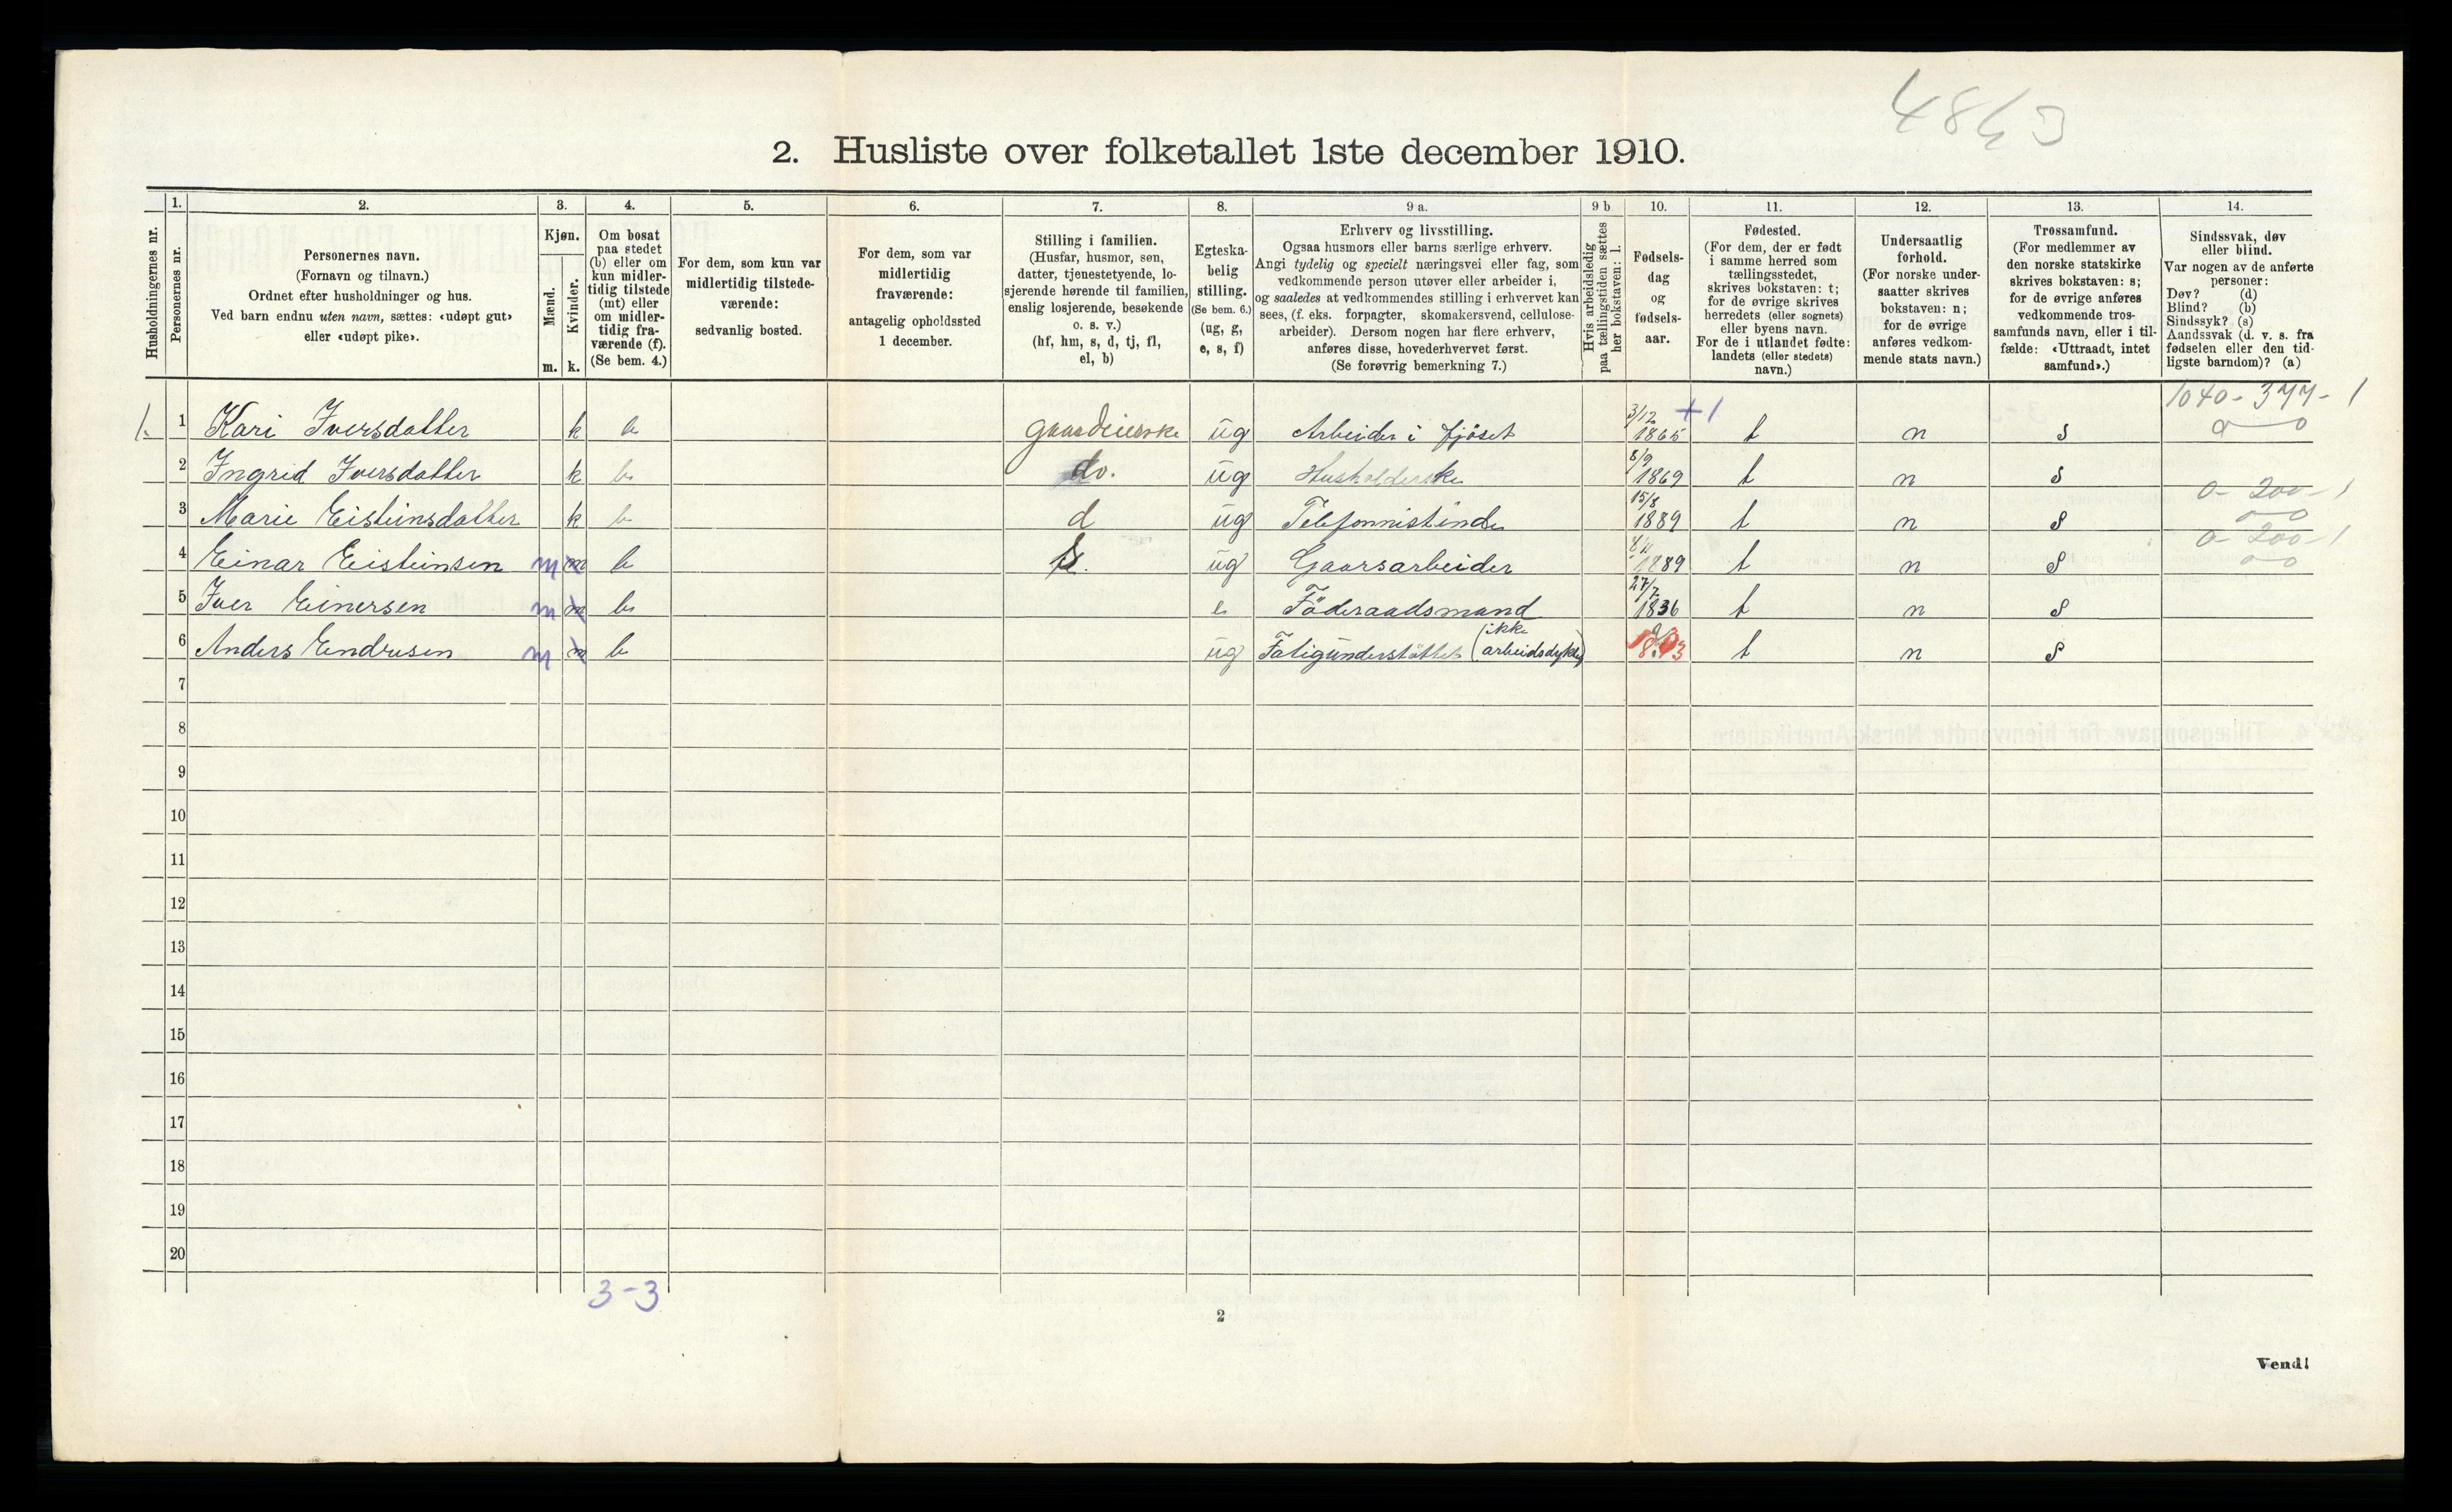 4863
2. Husliste over folketallet 1ste december 1910.
1. 2. 3. 4. 5. 6. 7. 8. 9 a. 9 b 10. 11. 12. 13. 14.
Husholdningernes nr.
Personernes nr.
Personernes navn.
(Fornavn og tilnavn.)
Ordnet efter husholdninger og hus.
Ved barn endnu uten navn, sættes: «udøpt gut»
eller «udøpt pike».
Kjøn.
Mænd.
Kvinder.
m. k.
Om bosat
paa stedet
(b) eller om
kun midler-
tidig tilstede
(mt) eller
om midler-
tidig fra-
værende (f).
(Se bem. 4.)
For dem, som kun var
midlertidig tilstede-
værende:
sedvanlig bosted.
For dem, som var
midlertidig
fraværende:
antagelig opholdssted
1 december.
Stilling i familien.
(Husfar, husmor, søn,
datter, tjenestetyende, lo-
sjerende hørende til familien,
enslig losjerende, besøkende
o. s. v.)
(hf, hm, s, d, tj, fl,
el, b)
Egteska-
belig
stilling.
(Se bem. 6.)
(ug, g,
e, s, f)
Erhverv og livsstilling.
Ogsaa husmors eller barns særlige erhverv.
Angi tydelig og specielt næringsvei eller fag, som
vedkommende person utøver eller arbeider i,
og saaledes at vedkommendes stilling i erhvervet kan
sees, (f. eks. forpagter, skomakersvend, cellulose-
arbeider). Dersom nogen har flere erhverv,
anføres disse, hovederhvervet først.
(Se forøvrig bemerkning 7.)
Hvis arbeidsledig
paa tællingstiden sættes
her bokstaven: l.
Fødsels-
dag
og
fødsels-
aar.
Fødested.
(For dem, der er født
i samme herred som
tællingsstedet,
skrives bokstaven: t;
for de øvrige skrives
herredets (eller sognets)
eller byens navn.
For de i utlandet fødte:
landets (eller stedets)
navn.)
Undersaatlig
forhold.
(For norske under-
saatter skrives
bokstaven: n;
for de øvrige
anføres vedkom-
mende stats navn.)
Trossamfund.
(For medlemmer av
den norske statskirke
skrives bokstaven: s;
for de øvrige anføres
vedkommende tros-
samfunds navn, eller i til-
fælde: «Uttraadt, intet
samfund».)
Sindssvak, døv
eller blind.
Var nogen av de anførte
personer:
Døv? (d)
Blind? (b)
Sindssyk? (s)
Aandssvak (d. v. s. fra
fødselen eller den tid-
ligste barndom)? (a)
1040-377-1
1. 1 Kari Iversdatter k b gaardeierske ug Arbeider i fjöset 3/12 1865 +1 t n s 0 0
2 Ingrid Iversdatter k b do. ug Husholderske 8/9 1869 t n s
0-200-1
3 Marie Eisteinsdatter k b d ug Telefonnistinde 15/8 1889 t n s 0 0
0-200-1
4 Einar Eisteinsen m m b s. ug Gaarsarbeider 1889 t n s 0 0
5 Iver Einersen m m b e Föderaadsmand 27/7 1836 t n s
6 Anders Endresen m m b ug Fatigunderstöttet (ikke arbeidsdyktig) t n s
7
8
9
10
11
12
13
14
15
16
17
18
19
20
3-3
2
Vend!